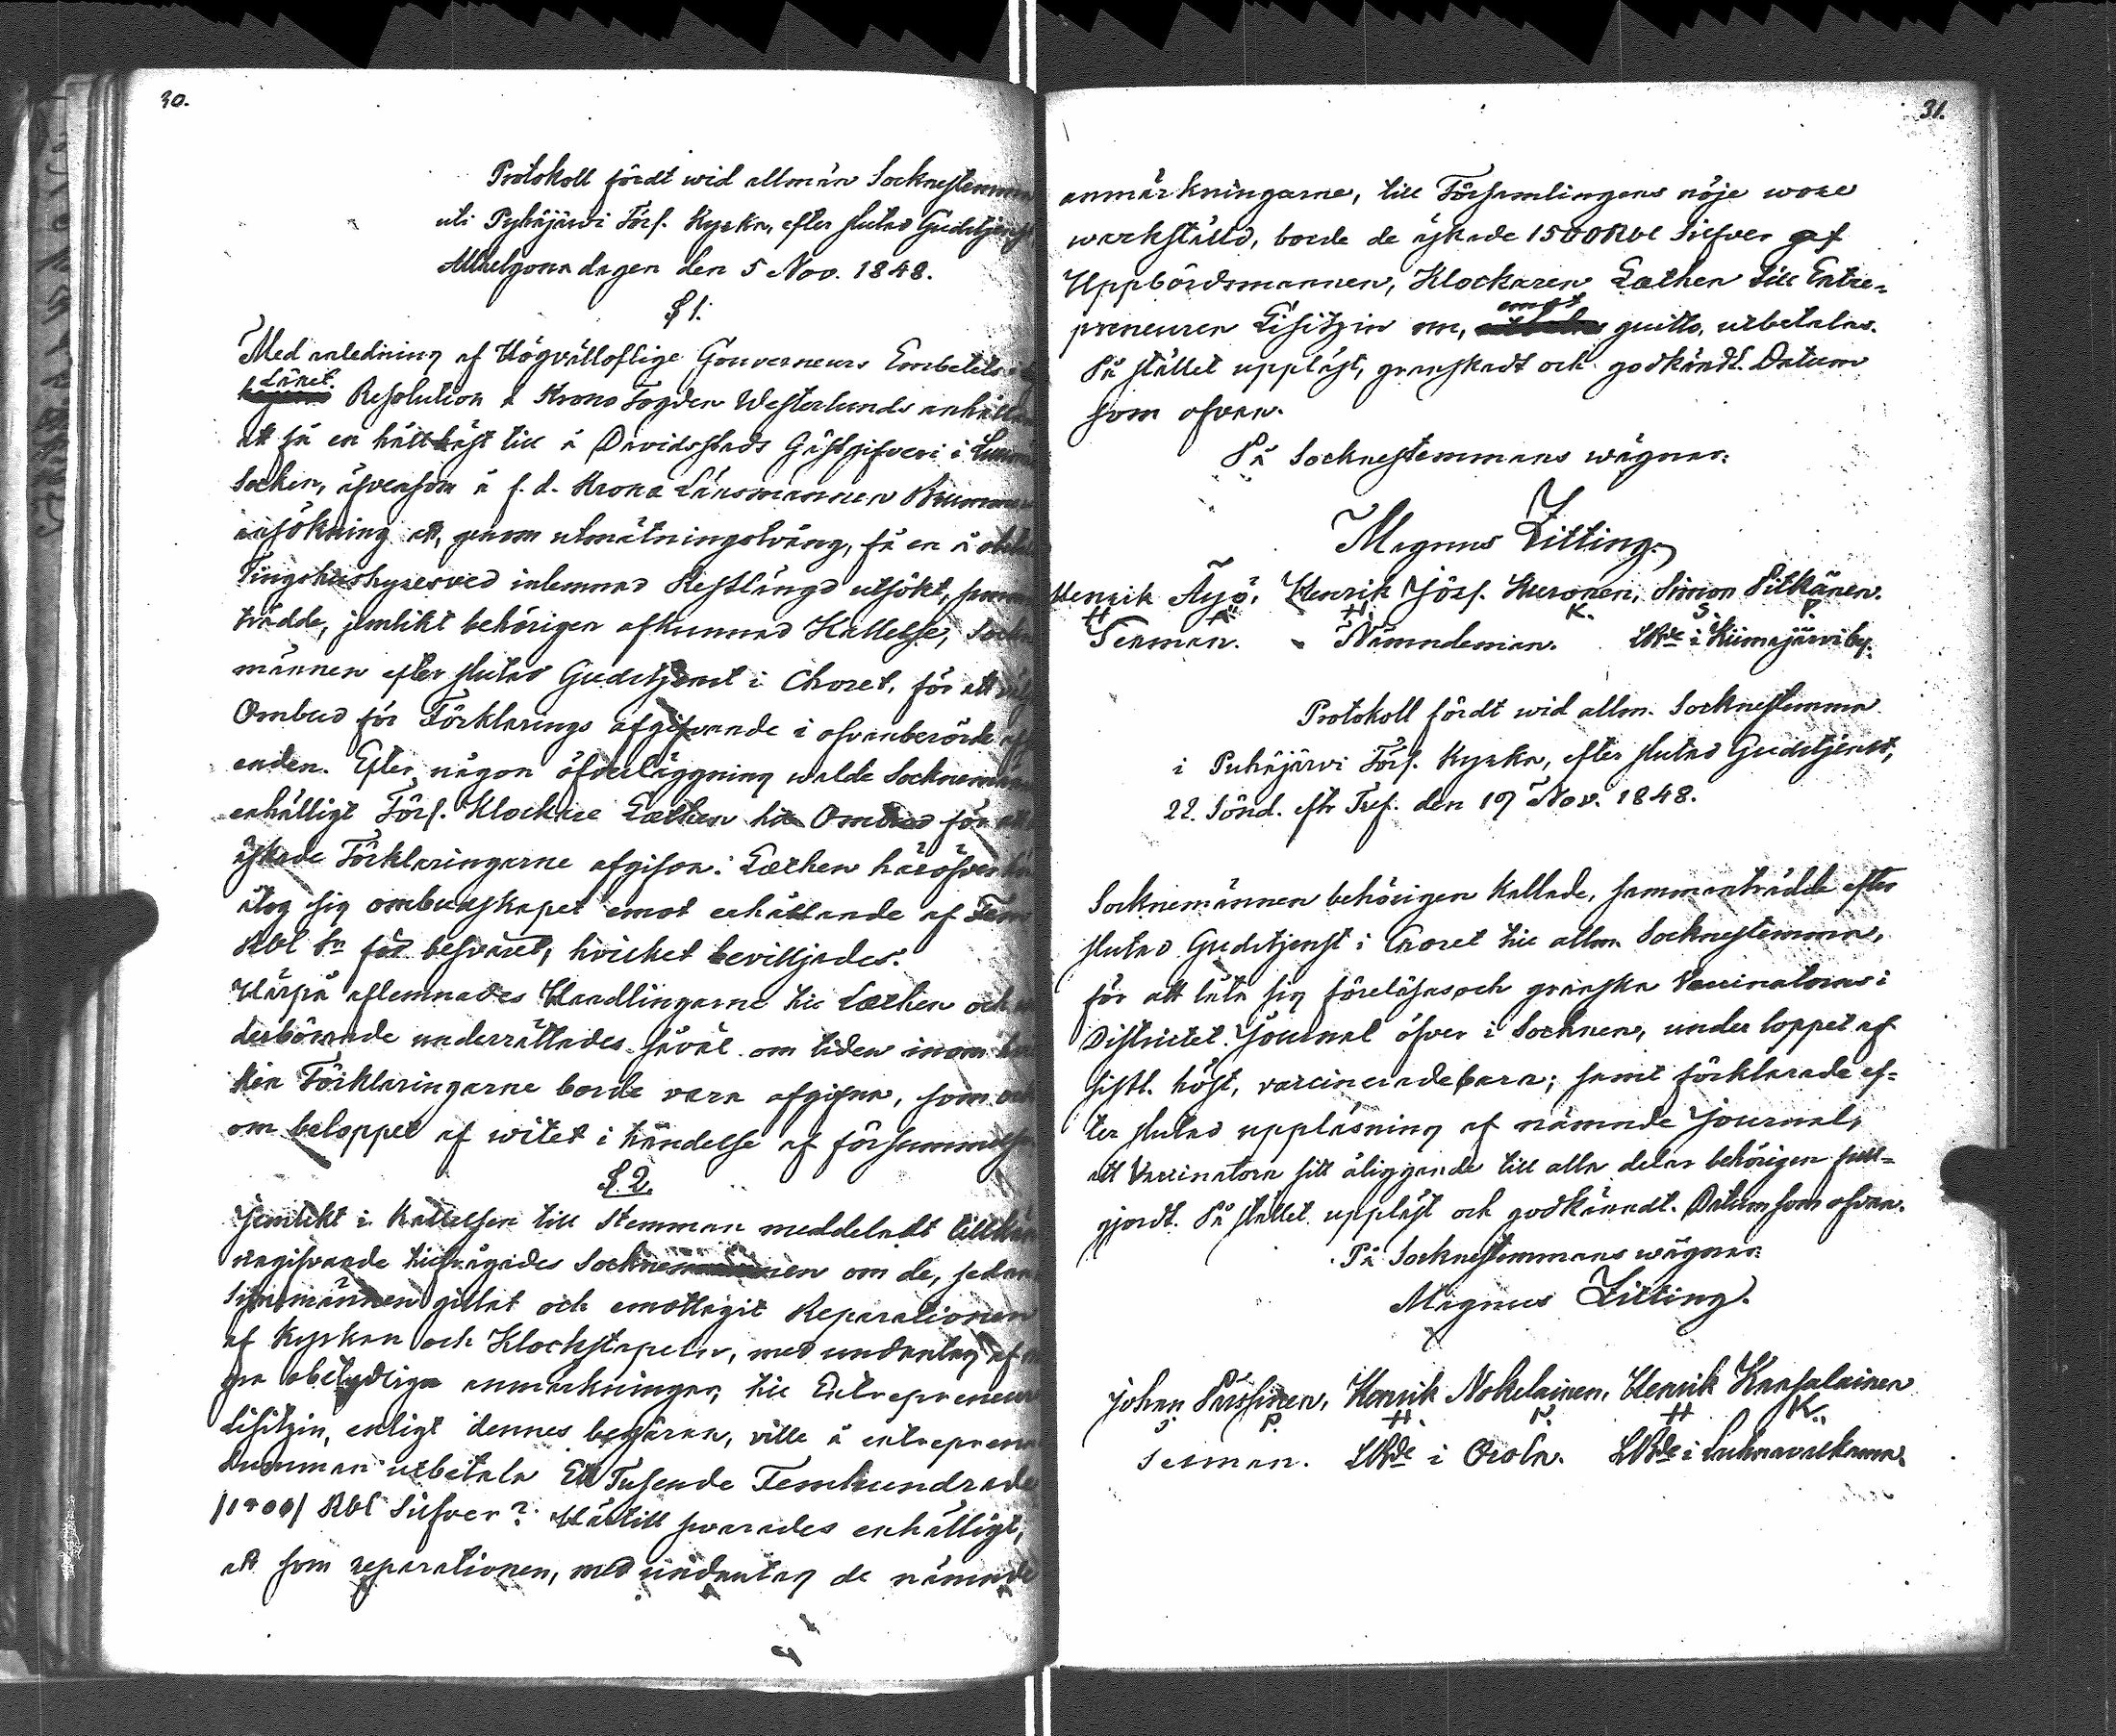 30.
Protokoll fördt wid allmän Socknestemma
uti Pyhäjärwi Förs. Kyrka, efter slutad Gudstjenst
Allhelgona dagen den 5 Nov. 1848.
§ 1.
Med anledning af Högvälloflige Gouverneurs Embetets i
Länet
Resolution å Krono Fogden Westerlunds anhållan
att få en hållhäst till å Davidstads Gästgifveri i
Socken, äfvensom å f. d. Krono Länsmannen
ansökning att, genom utmätningstvång, få en å
Tingshushyresved inlemnad Restlängd utsökt,
trädde, jemlikt behörigen afkunnad Kallelse, Sockne
männen efter slutad Gudstjenst i Choret, för att
Ombud för Förklarings afgifvande i ofvanberörde
enden. Efter någon öfverläggning walde Socknemännen
enhälligt Förs. Klockare Læthen till Ombud för att
äskade Förklaringarne afgifva. Læthen häröfver
åtog sig ombudskapet emot erhållande af Fem
Rbl Sr för besväret, hvilket beviljades.
Härpå aflemnades Handlingarne till Læthen och
derbörande underrättades såväl om tiden inom
ken Förklaringarne borde vara afgifna, som
om beloppet af witet i händelse af försummelse
§ 2.
Jemlikt i Kallelsen till Stemman meddeladt
nagifvande tillfrågades Socknemännen om de, sedan
Synemännen gillat och emottagit Reparationen
af Kyrkan och Klockstapeln, med undantag af
gra obetydliga anmärkningar, till Entrepreneuren
Lisitzin, enligt dennes begäran, ville å entreprenad
Summan utbetala Ett Tusende Femhundrade
/1500/ Rbl Silfver? Härtill svarades enhälligt,
att som reparationen, med undantag de nämnde
31.
anmärkningarne, till Församlingens nöje wore
werkställd, borde de äskade 1500 Rbl Silfver af
Uppbördsmannen, Klockaren Læthen till Entre-
emot
preneuren Lisitzin nu, quitto, utbetalas.
På stället uppläst, granskadt och godkändt. Datum
som ofvan.
På Socknestemmans wägnar:
Magnus Zitting.
Henrik Äyö, Henrik Jösf. Huronen, Simon Pitkänen.
H Ä H. K. S. P.
Sexman. Nämndeman. LBde i Kiimajärvi by.
Protokoll fördt wid allm. Socknestemma
i Puhäjärvi Förs. Kyrka, efter slutad Gudstjenst,
22. Sönd. eftr Tref. den 19 Nov. 1848.
Socknemännen behörigen kallade, sammanträdde efter
slutad Gudstjenst i Choret till allm. Socknestemma,
för att låta sig föreläsas och granska Vaccinatorns i
Districtet Journal öfver i Socknen, under loppet af
sistl. höst, vaccinerade barn; samt förklarade ef-
ter slutad uppläsning af nämnde Journal,
att Vaccinatorn sitt åliggande till alla delar behörigen full-
gjordt. På stället uppläst och godkänndt. Datum som ofvan.
På Socknestemmans wägnar:
Magnus Zitting.
Johan Pärssinen, Henrik Nokelainen, Henrik Kansalainen
J P. H. N. H K.
Sexman. LBde i Orola. LBde i